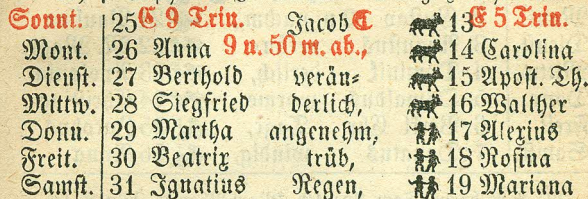 Sonnt. 25 E 9 Trin. Jacob 13 E 5 Trin.
Mont. 26 Anna 9 u. 50 m. ab., 14 Carolina
Dienst. 27 Berthold verän⸗ 15 Apost. Th.
Mittw. 28 Siegfried derlich, 16 Walther
Donn. 29 Martha angenehm, 17 Alexius
Freit. 30 Beatrix trüb, 18 Rosina
Samst. 31 Ignatius Regen, 19 Mariana